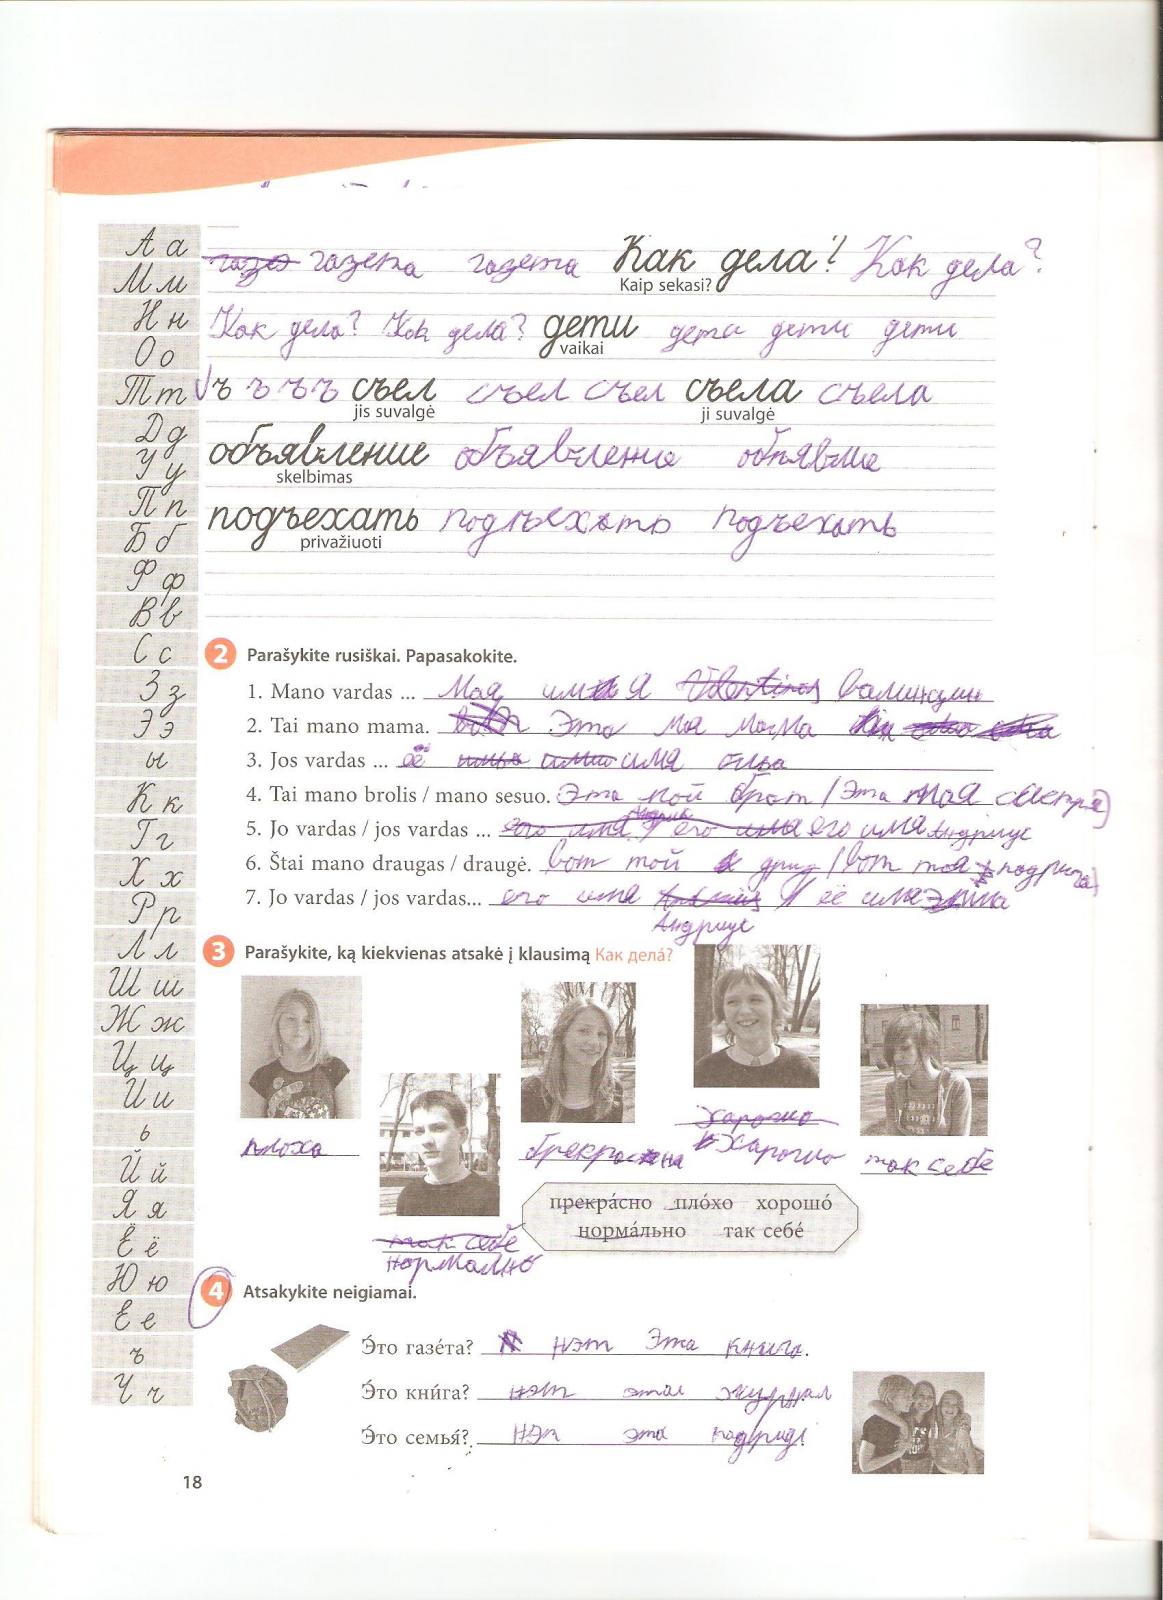 А а
М м
Н н
О о
Т т
Д д
У у
П п
Б б
Ф ф
В в
С с
З з
Э э
ы
К к
Г г
Х х
Р р
Л л
Ш ш
Ж ж
Ц ц
И и
ь
Й й
Я я
Ё ё
Ю ю
Е е
ъ
Ч ч
газета газета Как дела? Как дела?
Kaip sekasi?
Как дела? Как дела? дети дети дети дети
vaikai
ъ ъ ъ ъ съел съел съел съела съела
jis suvalgė ji suvalgė
объявление объявление
skelbimas
подъехать подъехать подъехать
privažiuoti
2 Parašykite rusiškai. Papasakokite.
1. Mano vardas ... Моя имя
2. Tai mano mama. Эта моя мама
3. Jos vardas ... её имя
4. Tai mano brolis / mano sesuo. Эта мой брат / Эта моя
5. Jo vardas / jos vardas ... его имя Андриус
6. Štai mano draugas / draugė. вот мой друг / вот моя
7. Jo vardas / jos vardas... его имя / её имя
Андриус
3 Parašykite, ką kiekvienas atsakė į klausimą Как делá?
плоха
харошо
так себе
прекрáсно плóхо хорошó
нормáльно так себé
так себе
нормално
4 Atsakykite neigiamai.
Э́то газéта? нэт Эта книга.
Э́то кни́га? нэт эта журнал
Э́то семья́? нэт эта
18